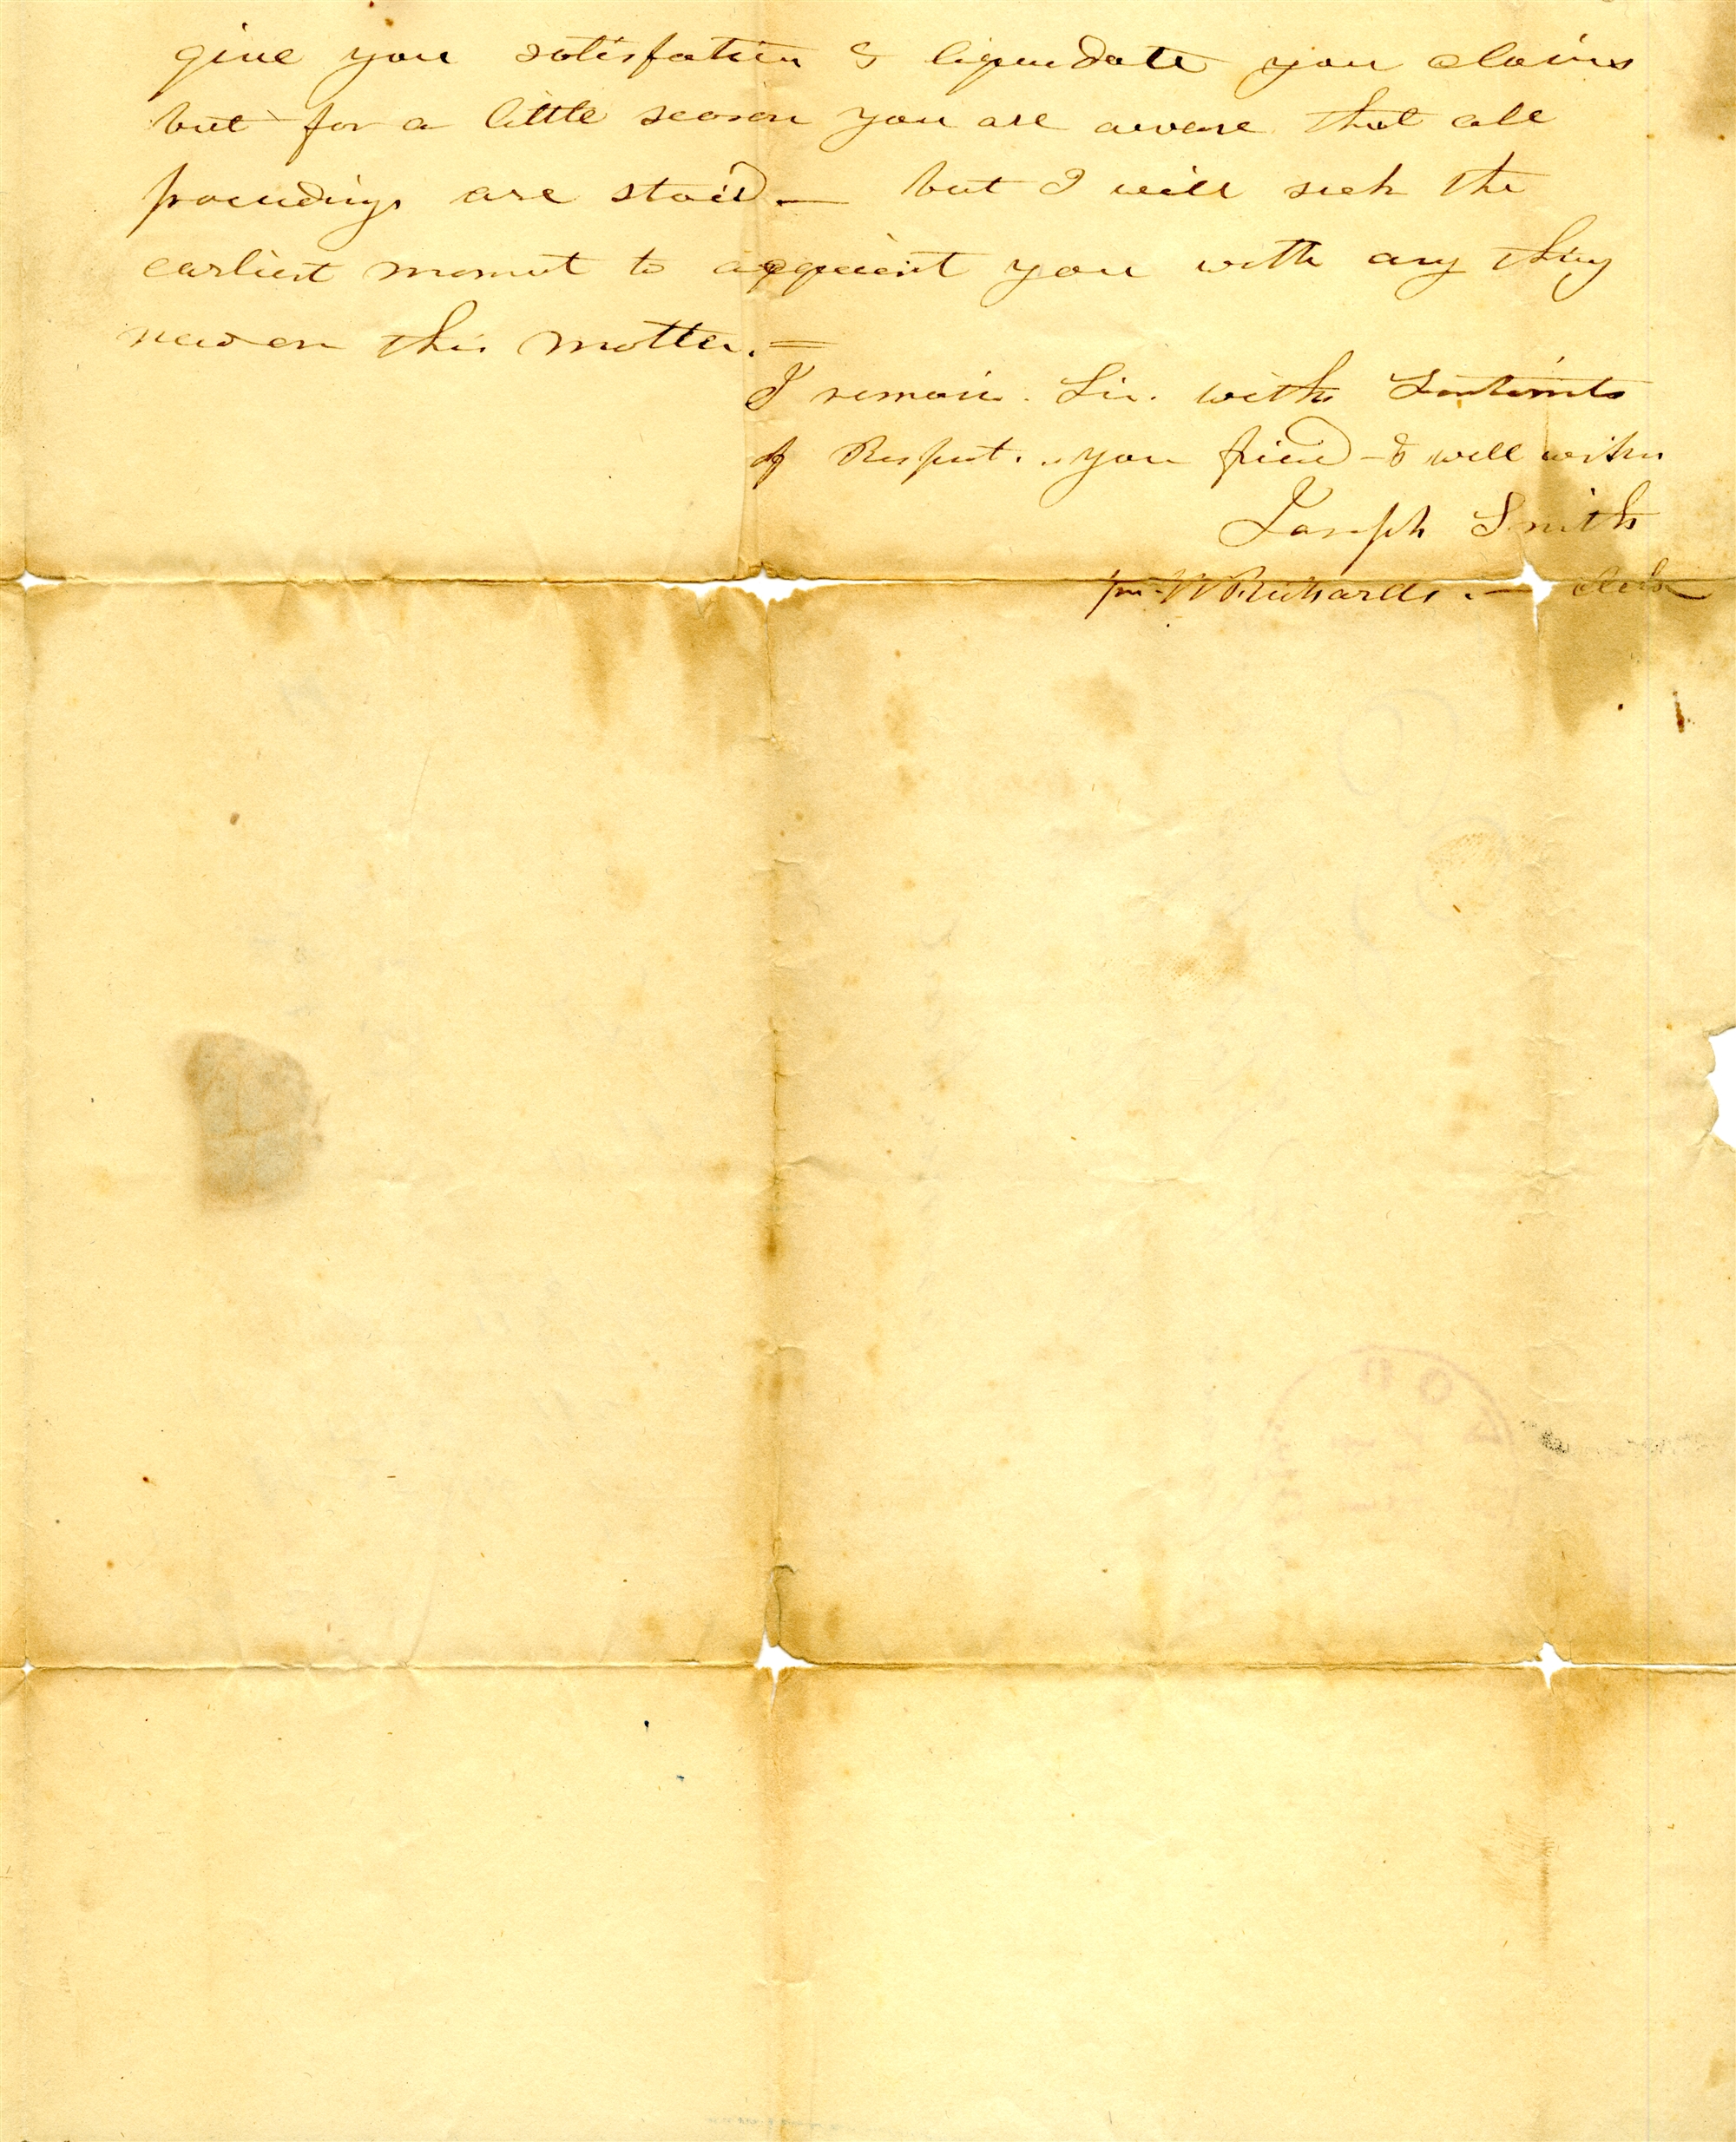 give you satisfaction & liquidate you claims
but for a little season you are aware that all
proceedings are staid.— but I will seek the
earliest moment to acquaint you with any thing
new on this matter.=
I remain. Sir. with Sentiments
of Respect. you friend & well wisher
Joseph Smith
per W Richards.— clerk